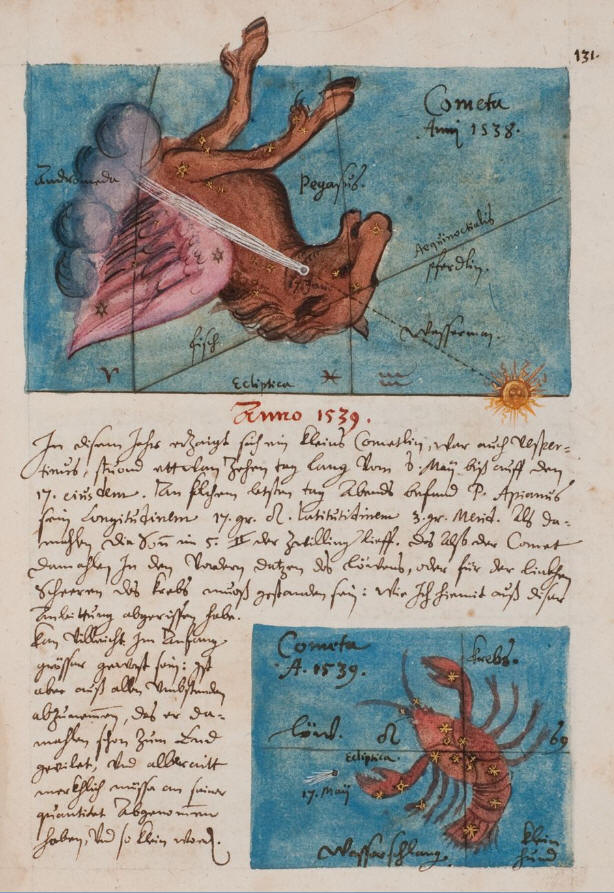 131.
Cometa
Anni 1538.
Andromeda
Pegasus.
Aequinoctialis
17. Jan.
pferdlin.
Wasserman.
fisch
♈
Ecliptica
♓
♒
Anno 1539.
In disem Jahr erzaigt sich ein kleins Cometlin, war auch Vesper-
tinus, stuond ettwan zehen tag lang vom 8. Maij biß auff den
17. eiusdem. An solchem letsten tag Abends befand P. Apianus
sein Longitudinem 17. gr. ♌. Latitudinem 3. gr. Merid. Als da-
mahlen die Son in 5. ♊ der Zwilling lieff. Das also der Comet
damahlen in den vordern datzen des Löwens, oder für der linkhen
Scheeren des Krebs muoß gestanden sein: wie Ich hiemit auß diser
abgerissen habe.
Kan villeicht Im Anfang
grösser gewest sein: Ist
aber auß allen Umbstenden
abzunemmen, das er da-
mahlen schon zum End
geeilet, Und allberaitt
merkhlich müsse an seiner
quantitet Abgenommen
haben, Und so klein word.
Cometa
A. 1539.
Krebs.
Löw.
♌
♋
Ecliptica.
17. Maij
Wasserschlang.
klein
hund